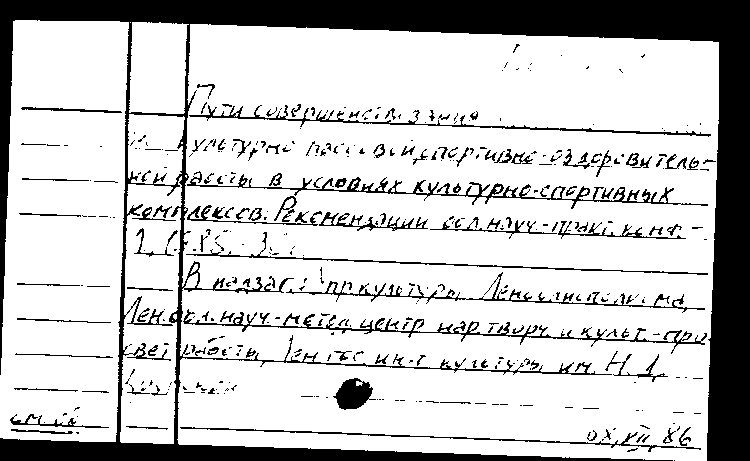 Пути совершенствования
культурно массовой, спортивно-оздоровитель-
ной работы в условиях культурно-спортивных
комплексов: Рекомендации обл. науч.-практ. конф.-
В надзаг.: Упр культуры Леноблисполкома,
Лен. обл. науч.-метод. центр нар. творч. и культ.-про-
свет работы, Лен гос. ин-т культуры им. Н.
см. об.
ох, XII, 86